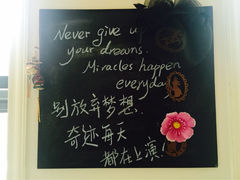 Never give up
your dreams.
Miracles happen
everyday
别放弃梦想.
奇迹每天
都在上演!